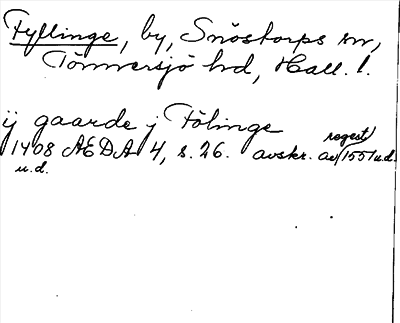 Fyllinge, by, Snöstorps sn,
Tönnersjö hd, Hall. l.
ij gaarde j Fölinge
1408 AEDA 4, s. 26. avskr. av regest 1551 u.d.
u.d.